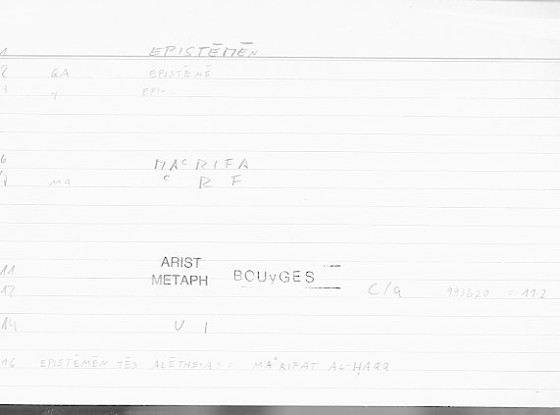 1 EPISTĒMĒN
2 GA EPISTĒMĒ
EPI-
6 MAᶜRIFA
MA ᶜ R F
11 ARIST
METAPH BOUyGES
12 C/a 993b20 = 11.2
14 U 1
16 EPISTĒMĒN TĒS ALĒTHEIAS : MAᶜRIFAT AL-ḤAQQ